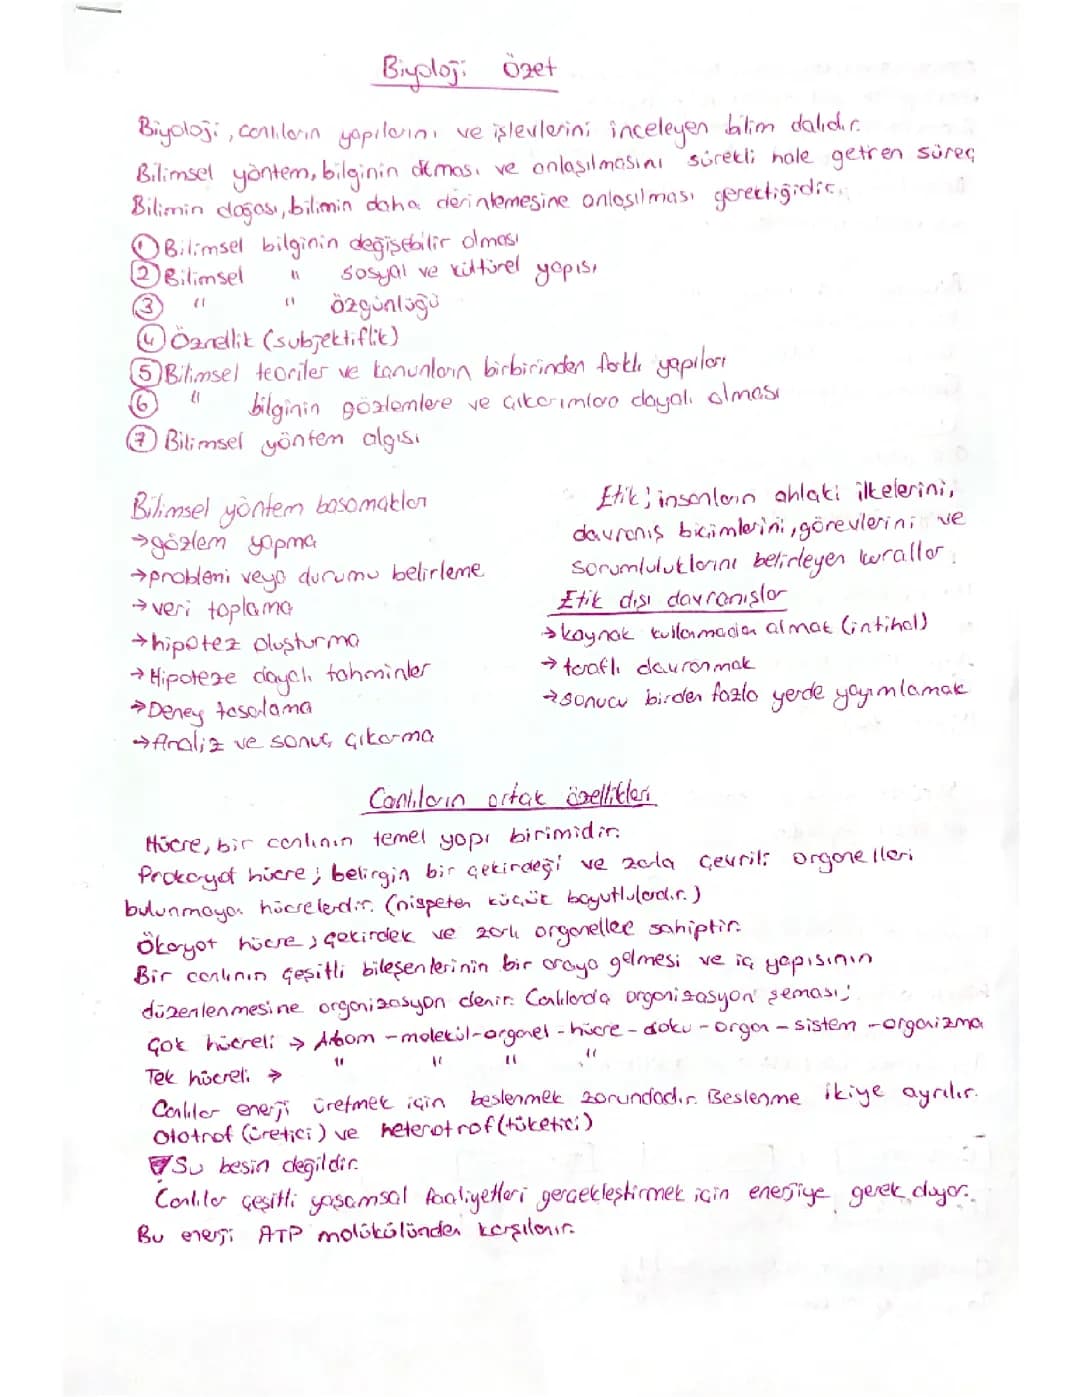 Biyoloji Özet
Biyoloji, canlıların yapılarını ve işlevlerini inceleyen bilim dalıdır.
Bilimsel yöntem, bilginin olması ve anlaşılmasını sürekli hale getren süreç
Bilimin doğası, bilimin daha derinlemesine anlaşılması gerektiğidir.
① Bilimsel bilginin değişebilir olması
② Bilimsel " sosyal ve kültürel yapısı
③ " " özgünlüğü
④ Öznellik (subjektiflik)
⑤ Bilimsel teoriler ve kanunların birbirinden farklı yapıları
⑥ " bilginin gözlemlere ve çıkarımlara dayalı olması
⑦ Bilimsel yöntem algısı
Bilimsel yöntem basamakları
→gözlem yapma
→problemi veya durumu belirleme
→veri toplama
→hipotez oluşturma
→Hipoteze dayalı tahminler
→Deney tasarlama
→Analiz ve sonuç çıkarma
Etik; insanların ahlaki ilkelerini,
davranış biçimlerini, görevlerini ve
sorumluluklarını belirleyen kurallar.
Etik dışı davranışlar
→kaynak kullanmadan almak (intihal)
→taraflı davranmak
→sonucu birden fazla yerde yayımlamak
Canlıların ortak özellikleri
Hücre, bir canlının temel yapı birimidir.
Prokaryot hücre; belirgin bir çekirdeği ve zarla çevrili organelleri
bulunmayan hücrelerdir. (nispeten küçük boyutlulardır.)
Ökaryot hücre; çekirdek ve zarlı organellee sahiptir.
Bir canlının çeşitli bileşenlerinin bir araya gelmesi ve iç yapısının
düzenlenmesine organizasyon denir. Canlılarda organizasyon şeması;
Çok hücreli → Atom - molekül - organel - hücre - doku - organ - sistem - organizma
Tek hücreli → " " " "
Canlılar enerji üretmek için beslenmek zorundadır. Beslenme ikiye ayrılır.
Ototrof (üretici) ve heterotrof (tüketici)
Su besin değildir.
Canlılar çeşitli yaşamsal faaliyetleri gerçekleştirmek için enerjiye gerek duyar.
Bu enerji ATP molükülünden karşılanır.